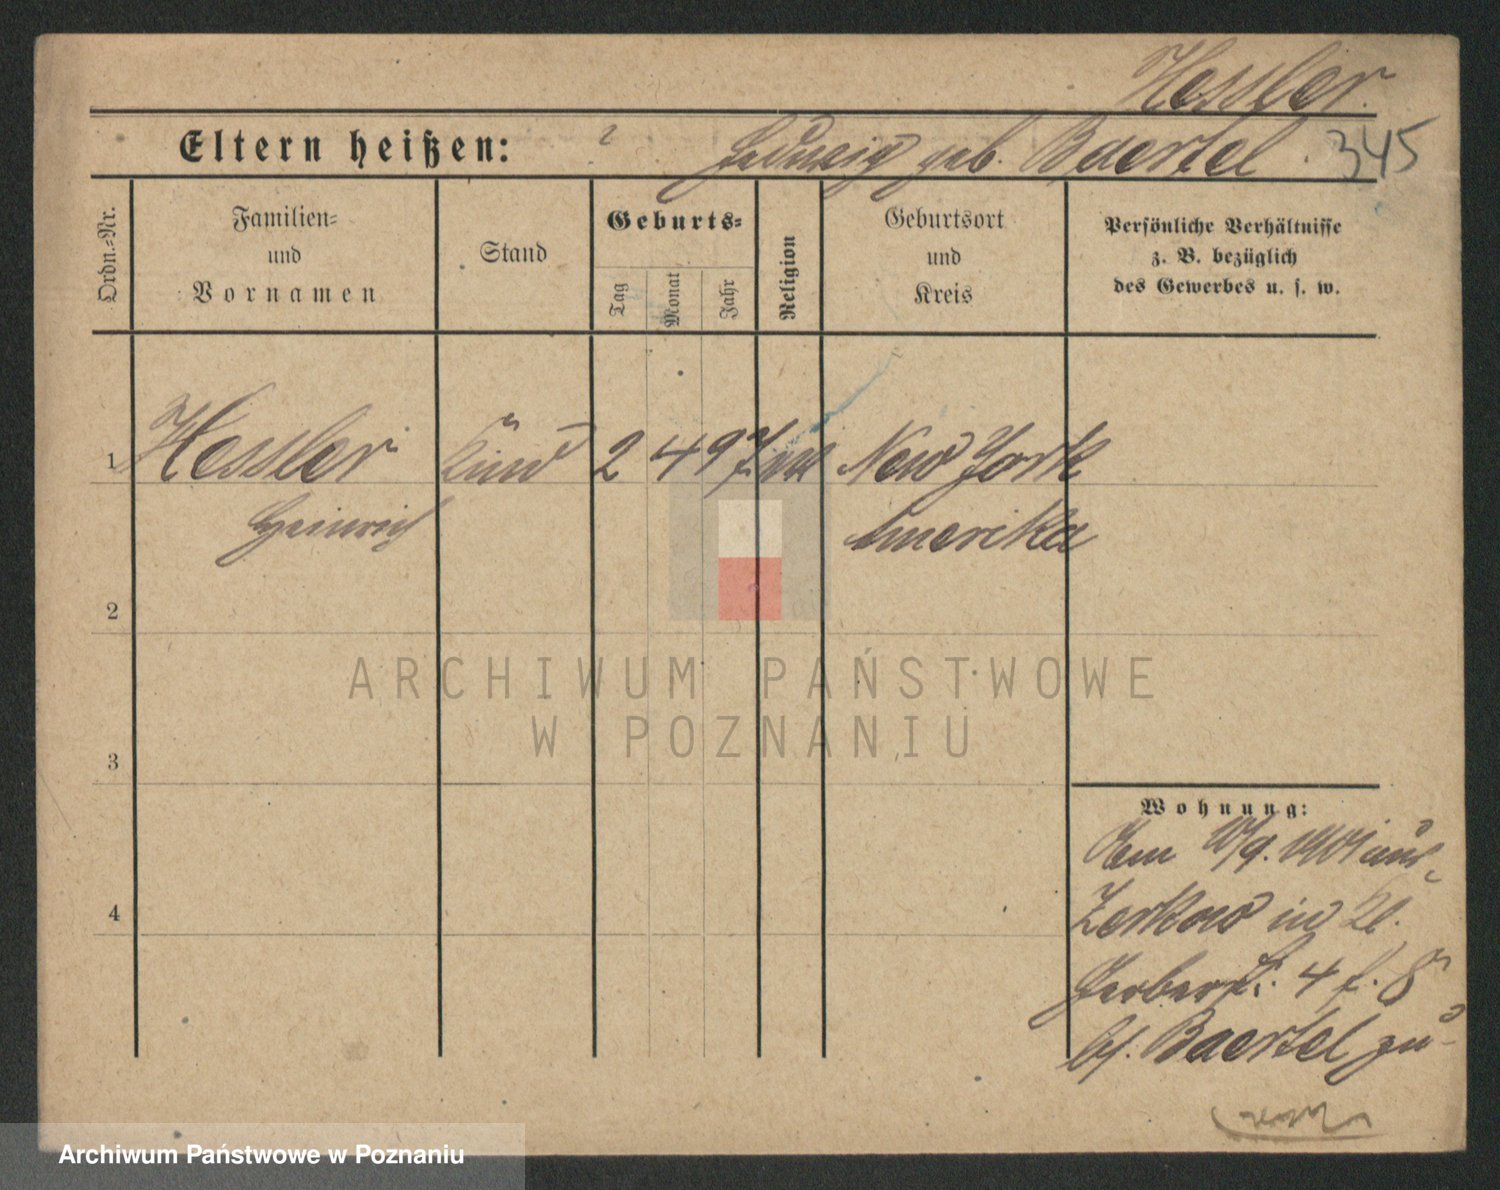 Hessler.
Eltern heißen: ? Hedwig geb. Baertel. 345
Ordn.=Nr.
Familien=
und
Vornamen
Stand
Geburts=
Tag
Monat
Jahr
Religion
Geburtsort
und
Kreis
Persönliche Verhältnisse
z. B. bezüglich
des Gewerbes u. s. w.
1 Hessler Kind 2 4 97 New York
Heinrich Amerika
2
3
4
Wohnung:
Am 10/9. 1901 aus
Zerkow in Kl.
Gerberst. 4 f. 8
bf. Baertel zu-
ARCHIWUM PAŃSTWOWE
W POZNANIU
Archiwum Państwowe w Poznaniu